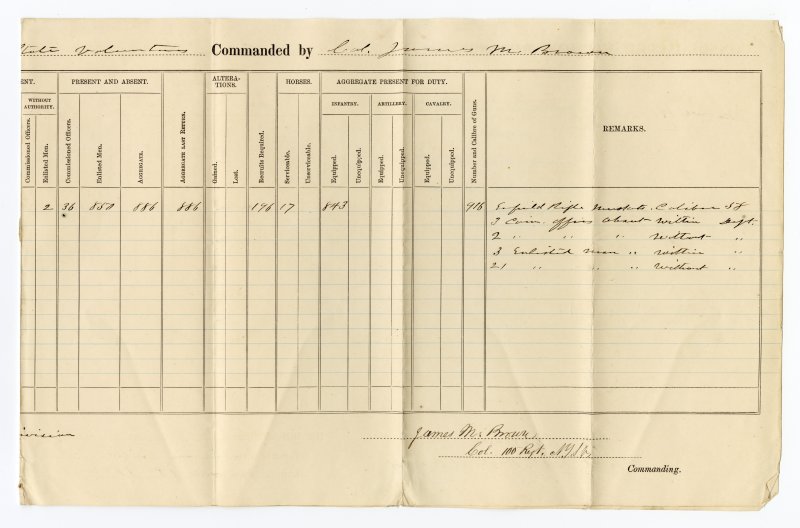 State Volunteers Commanded by Col. James M. Brown
ENT. PRESENT AND ABSENT. ALTERA- HORSES. AGGREGATE PRESENT FOR DUTY.
TIONS.
WITHOUT AUTHORITY. INFANTRY. ARTILLERY. CAVALRY.
Commissioned Officers. Enlisted Men. Commissioned Officers. Enlisted Men. AGGREGATE. AGGREGATE LAST RETURN. Gained. Lost. Recruits Required. Serviceable. Unserviceable. Equipped. Unequipped. Equipped. Unequipped. Equipped. Unequipped. Number and Calibre of Guns. REMARKS.
2 36 850 886 886 196 17 843 916 Enfield Rifle Muskets. Calibre 58
3 Com. Officers absent within Dept.
2 " " " without "
3 Enlisted men " within "
21 " " " without "
ivision
James M. Brown,
Col. 100 Regt. N.Y.S.V.
Commanding.